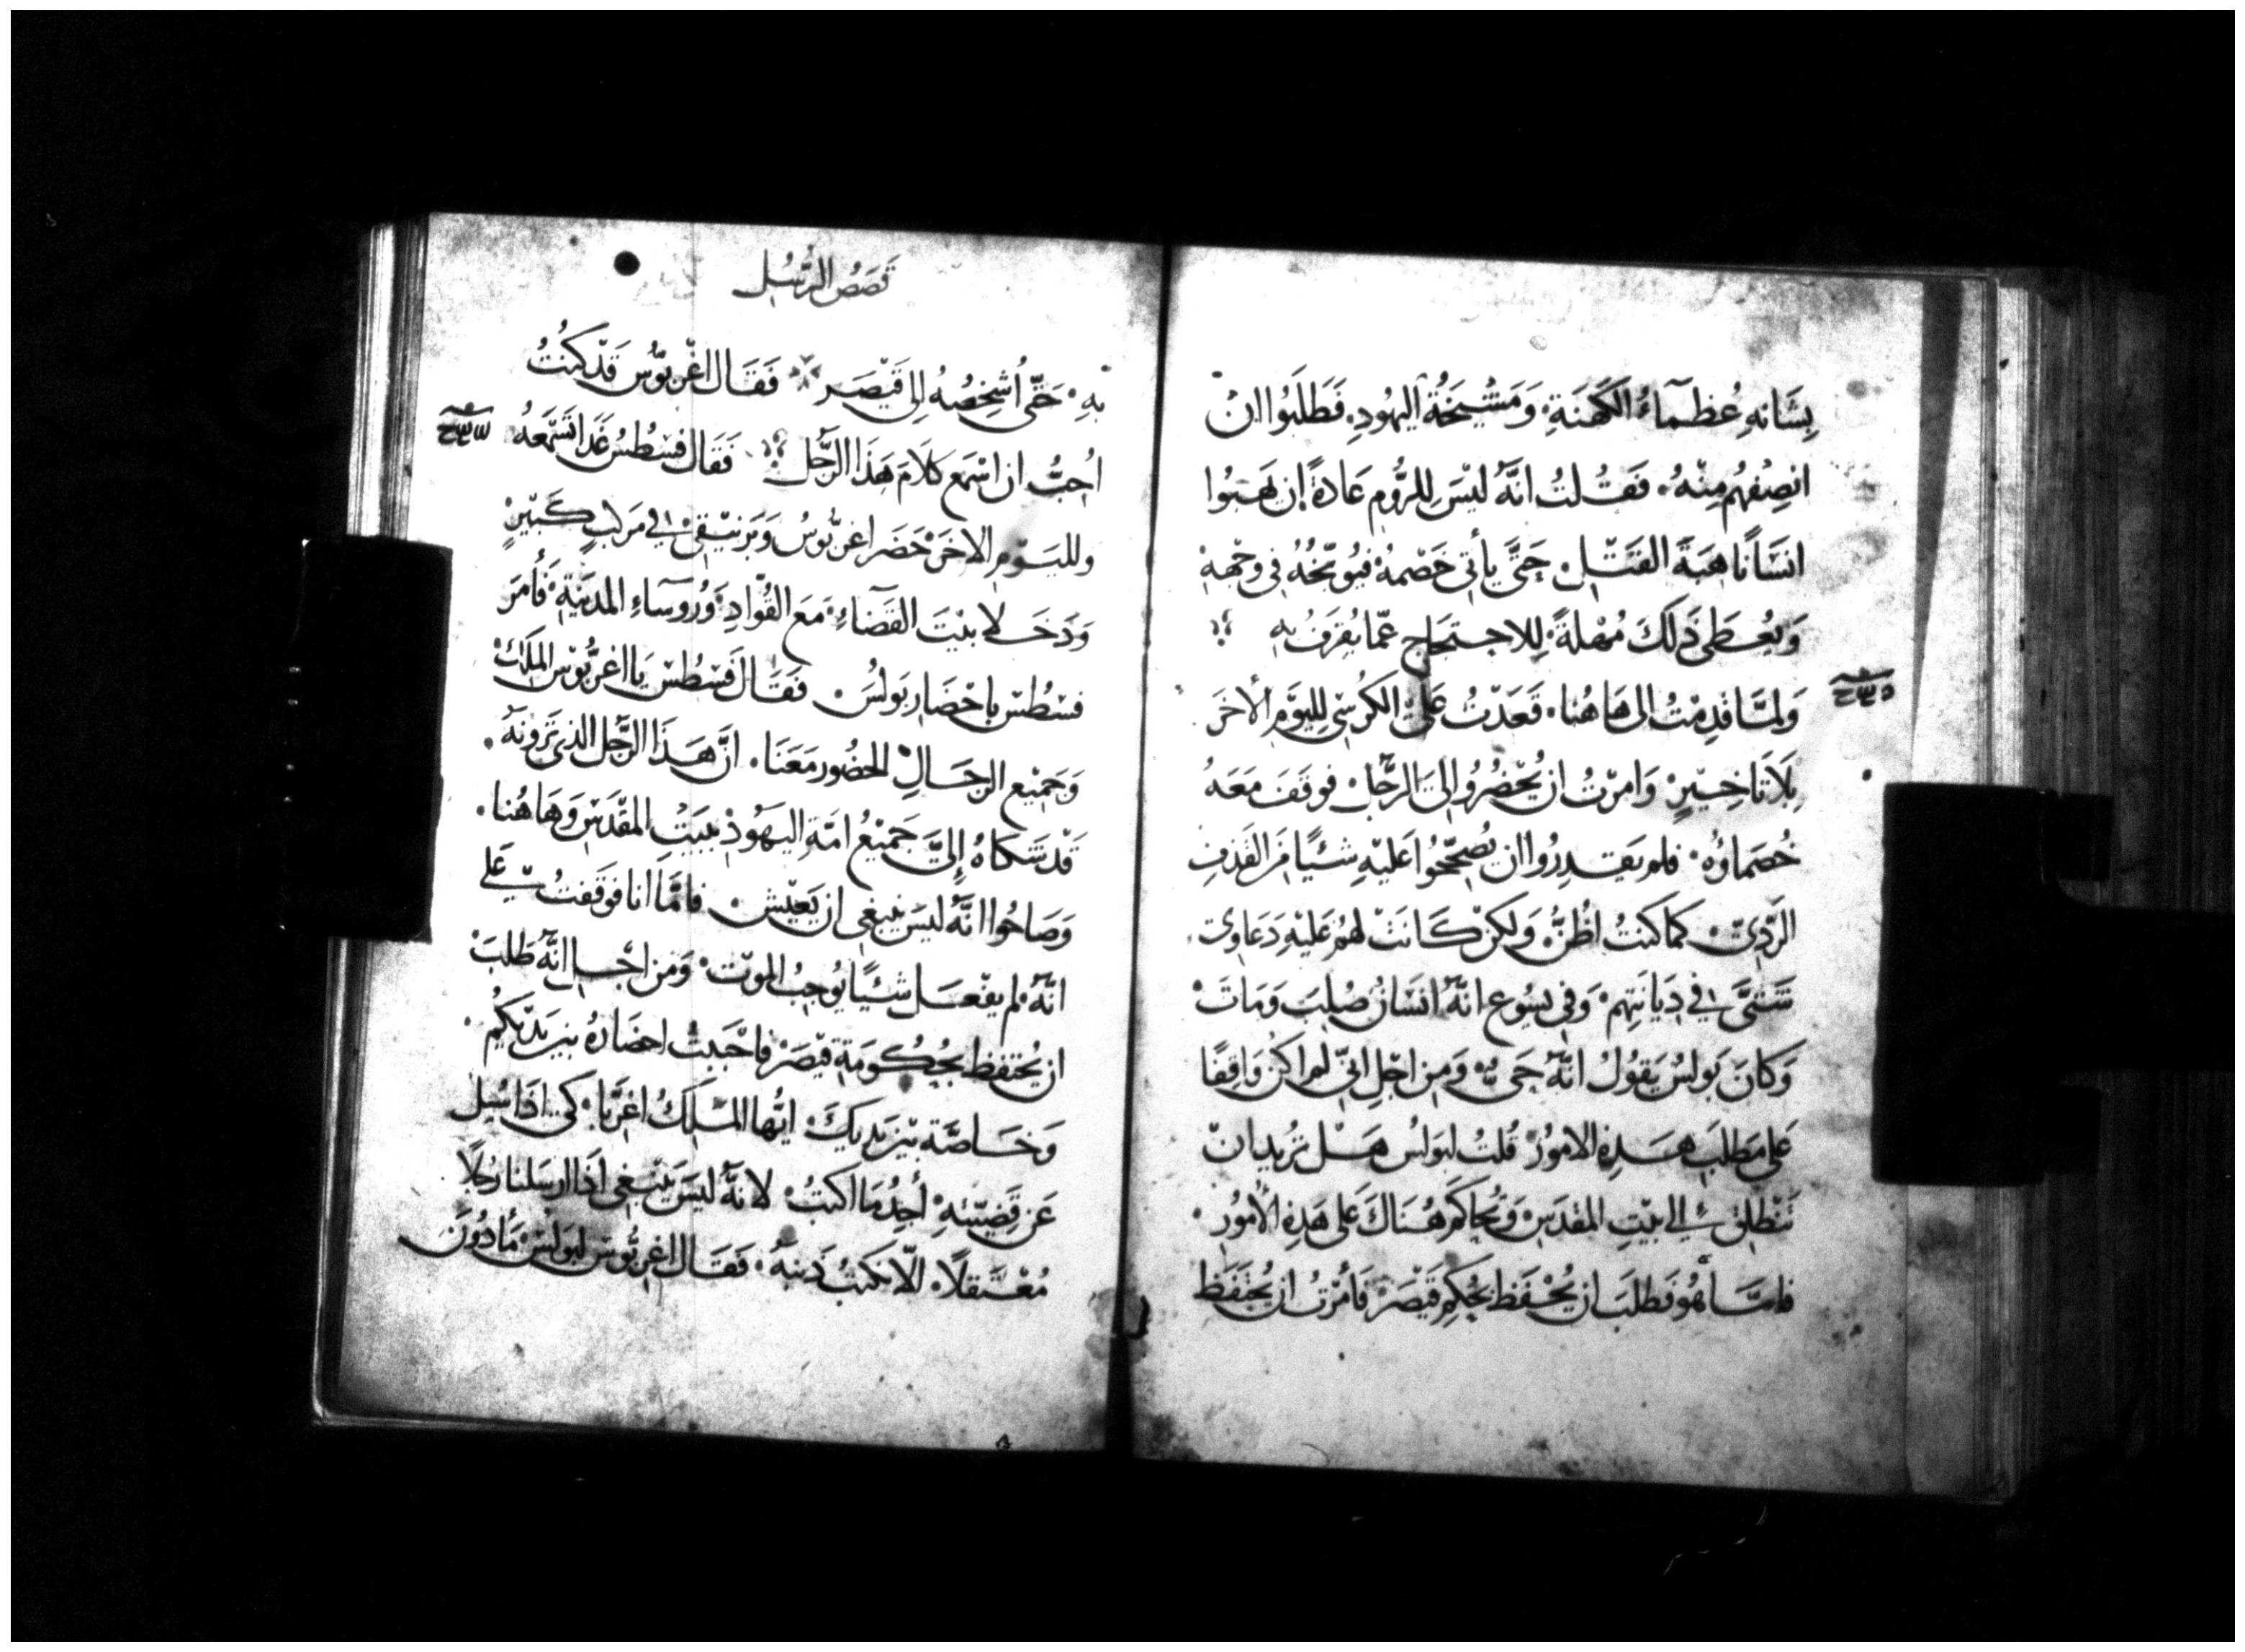 بِشَانِهِ عُظَمآءُ الكَهَنَةِ وَمَشْيَخَةُ اليَهُودِ. فَطَلَبُوا ان
انصِفُهُم مِنْهُ. فَقُلتُ انَّهُ ليْسَ لِلرُّومِ عَادةً ان يَهبُوا
انسَانًا هِبَةَ القَتْلِ حَتَّى يأتي خَصْمُهُ فيُوبّخُهُ في وَجْهِهِ
وَيُعْطَى ذَلكَ مُهْلةً لِلاحتجَاج عمّا يُقرَفُ بِهِ
وَلمَّا قدِمْتُ الى هَاهُنا. قَعَدْتُ عَلَى الكُرسْي لِليَوْمِ الأخَر
بِلَا تَاخيْرٍ وَامرْتُ ان يُحْضرُوا اليَّ الرجُل. فوقفَ مَعَهُ
خُصَماؤُه. فلم يَقدِرُوا ان يُصَحّحُوا عَليْهِ شئيًا مَن القَذفِ
الرَّدِيّ. كمَا كنتُ اظُنُّ. وَلكِنْ كَانَتْ لهُم عَليْهِ دَعَاوِي
شَتَّى في دِيَانَتِهم. وَفي يسُوع انَّهُ انسَانٌ صُلِبَ وَمَاتَ
وَكانَ بَولسُ يَقولُ انَّهُ حَيٌّ. وَمِن اجْلِ انّي لم اكُن وَاقِفًا
عَلى مَطلَبِ هَذِهِ الامُورْ قُلتُ لبَولسُ هَلْ تُريد ان
تَنْطلِق الى بَيْتِ المقدَسِ وَتُحَاكَم هُنَاكَ عَلى هَذِهِ الأمُورِ.
فامَّا هُو فَطلَبَ ان يُحْفَظ بحُكمِ قَيْصَرْ فَأمَرْتُ ان يُحتفَظ
قَصَصُ الرُّسُل
بِهِ. حَتَّى اُشْخِصُهُ الى قَيْصَر فَقَالَ اغْربّوُس قَدْ كنتُ
اُحِبُّ ان اسْمَع كلَامَ هَذَا الرَّجُل فَقَال فسْطُسُ غَدا تَسْمَعهُ
ولليَوْمِ الاخَرْ حَضَر اغربّوسُ وَبَرنيْقي في مَركبٍ كَبيْرٍ
وَدَخَلا بيْتَ القَضآءِ مَع القُوّادِ وَرُوسَآءِ المدينَةِ. فَأمَر
فسْطُسْ باحْضَار بَولسُ. فَقَالَ فسْطُسْ يَا اغربُّوسْ المَلكْ
وَجَميْع الرجَالِ الحضُور مَعَنَا. انَّ هَذَا الرَّجُل الذي تَرونَهُ.
قَدْ شكاهُ إليَّ جَميْعُ امّةِ اليَهُودْ ببَيْتِ المقدَسِ وَهَاهُنا.
وَصَاحُوا انَّهُ ليسَ ينبغي ان يَعيْش. فامَّا انا فَوقَفتُ عَلى
انَّهُ لم يَفْعَل شئيًا يُوجبُ الموْت. وَمن اجل انَّهُ طَلبَ
ان يُحتفظ بحُكومَةِ قيْصَرْ فاحْبَبتُ احضَارهُ بين يَديْكُمْ.
وَخَاصَّة بيْن يَديكَ ايُّها المَلكُ اغربَّا. كي اذَا سُيل
عَن قِضيّتِهِ أجدُ مَا اكتبُ. لانَّهُ ليسَ يَنبغي اذَا ارسَلنا رَجُلاً
مُعْتقلاً. الّا نكتبُ ذَنبهُ. فَقَال اغربُّوسْ لبَولسْ مَأذُونٌ